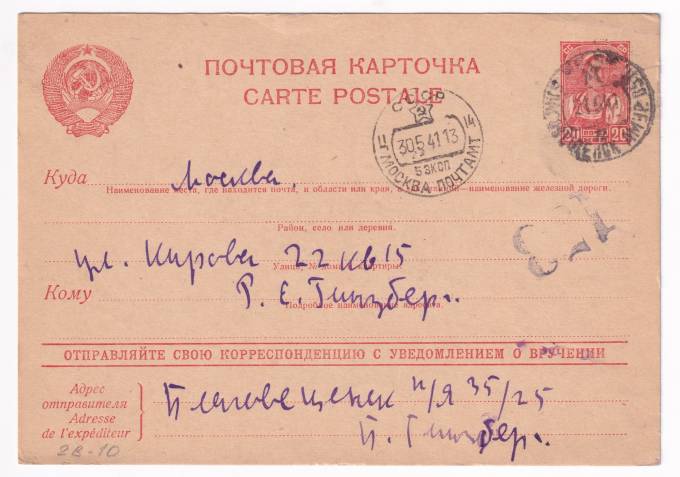 ПОЧТОВАЯ КАРТОЧКА
CARTE POSTALE
20 20
СССР
30.5.41.13
5 ЭКСП
МОСКВА ПОЧТАМТ
Куда Москва.
Наименование места, где находится почта, и области или края, а для станций—наименование железной дороги.
Район, село или деревня.
ул. Кирова 22 кв 15
Улица, № дома и квартиры.
Кому Р. Е. Гинзберг.
Подробное наименование адресата.
ОТПРАВЛЯЙТЕ СВОЮ КОРРЕСПОНДЕНЦИЮ С УВЕДОМЛЕНИЕМ О ВРУЧЕНИИ
Адрес
отправителя
Adresse
de l'expéditeur
Благовещенск п/я 35/25
Гинзберг.
28-10